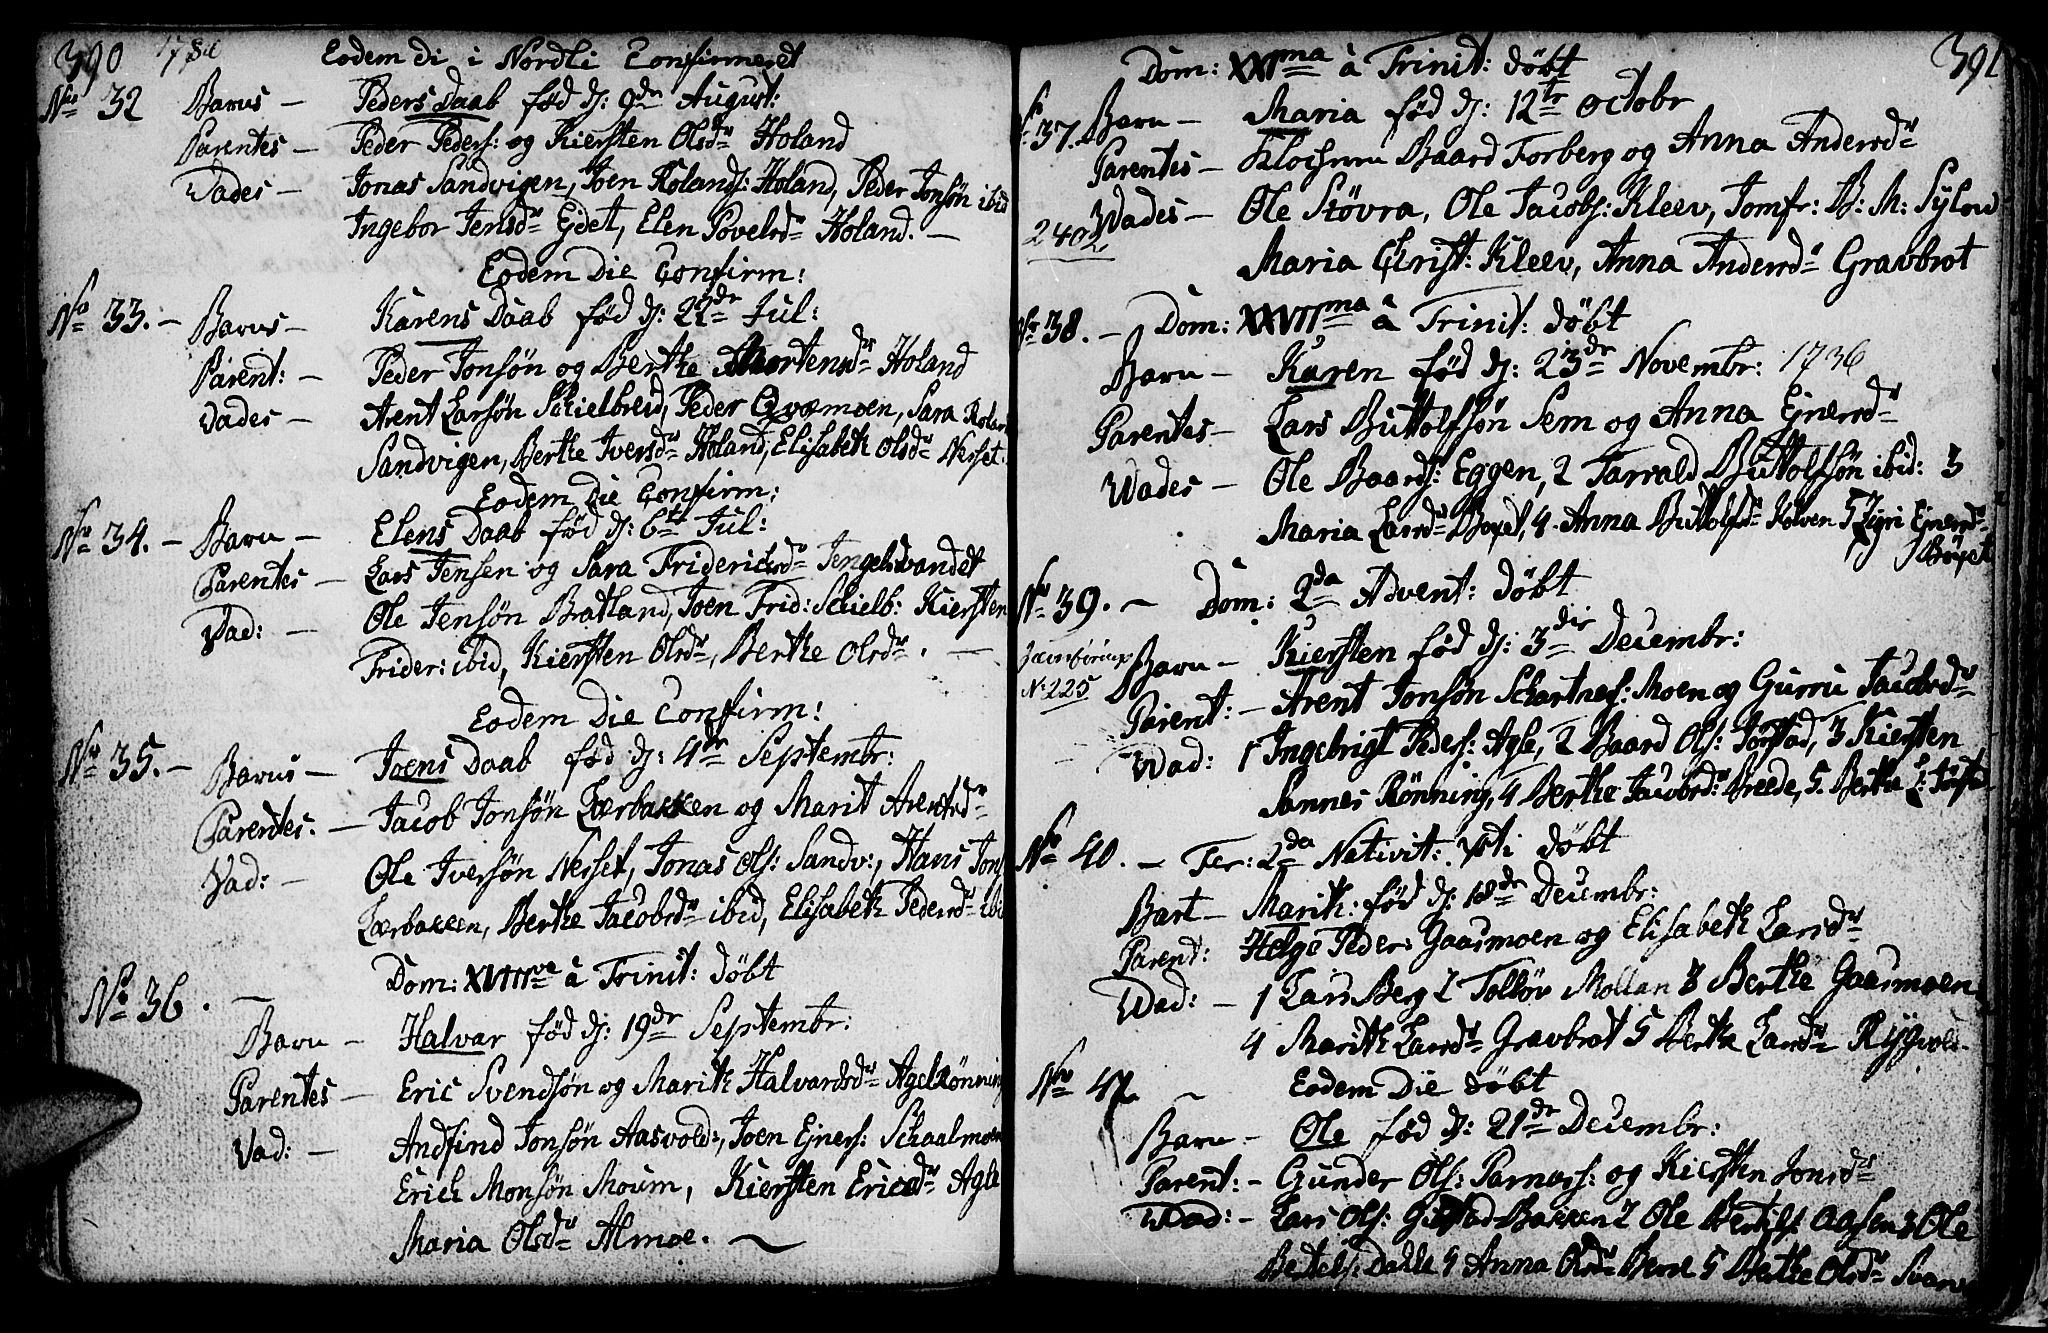 390
Eodem di i Nordli Confirmeret
No 32 Barns — Peders Daab fød d: 9de August:
Parentes — Peder Peders: og Kiersten Olsdr Holand
Vades — Jonas Sandvigen, Joen Rolands: Holand, Peder Jonsøn ibid
Ingebor Jensdr Ejdet, Elen Povelsdr Holand. —
Eodem Die Confirm:
No 33. — Barns — Karens Daab fød d: 22de Jul:
Parent: — Peder Jonsøn og Berthe Mortensdr Holand
Vades — Arent Larsøn Skielbreid, Peder Qvæmoen, Sara
Sandvigen, Berthe Iversdr Holand, Elisabeth Olsdr Nerset.
Eodem Die Confirm:
No 34. — Barn — Elens Daab fød d: 6te Jul:
Parentes — Lars Jensen og Sara Friderichsdr Jengelsvandet
Vad: — Ole Jensøn Bratland, Joen Frid: Schielb: Kiersten
Frider: ibid, Kiersten Olsdr, Berthe Olsdr. —
Eodem Die Confirm:
No 35. — Barns — Joens Daab fød d: 4de Septembr:
Parentes. — Jacob Jonsøn Lærbakken og Marit Arentsdr
Vad: — Ole Iversøn Nerset, Jonas Ols: Sandv:, Hans
Lærbakken, Berthe Jacobsdr ibid, Elisabeth Pedersdr
Dom: XVIIIve à Trinit: døbt
No 36. — Barn — Halvar fød d: 19de Septembr:
Parentes — Eric Svendsøn og Marith Halvardsdr Agelrønning
Vad: — Andfind Jonsøn Aasvold:, Joen Ejners: Schaalmoen
Erich Monsøn Moum, Kiersten Ericsdr Agle
Maria Olsdr Almoe. —
391
Dom: XXIma à Trinit: døbt
37. Barn — Maria fød d: 12te Octobr
Parentes — Klochern Baard Forberg og Anna Andersdr
2402 Wades — Ole Støvra, Ole Jacobs: Kleev, Jomfr: B: M: Sylow
Maria Christ: Kleev, Anna Andersdr Gravbrot
No 38. — Dom: XXVIIma à Trinit: døbt
Barn — Karen fød d: 23de Novembr: 1736
Parentes — Lars Buttolfsøn Sem og Anna Ejnersdr
Wades — Ole Baards: Eggen, 2 Tarrald Buttolfsøn ibid: 3
Maria Larsdr 4. Anna Buttolfsdr Kolven 5 Ejnersdr
No 39. — Dom: 2da Advent: døbt
No 225 Barn — Kiersten fød d: 3die Decembr:
Parent: — Arent Jonsøn Schartnes: Moen og Gurru Jacobsdr
Wad: 1 Ingebrigt Peders: Agle, 2 Baard Ols: Jørstad, 3 Kiersten
Sannes Rønning, 4 Berthe Jacobsdr Breede, 5. Berthe L:
No 40. — Fer: 2da Nativit: Xsti døbt
Bart — Marith: fød d: 18de Decembr:
Parent: Helge Peder: Gaasmoen og Elisabeth Larsdr
Wad: — 1 Lars Berg 2 Tolløv Mollan 3 Berthe Gaasmoen
4 Marith Larsdr Gravbrot 5 Berthe Larsdr
No 41. Eodem Die døbt
Barn — Ole fød d: 21de Decembr:
Parent: — Gunder Ols: Parnass: og Kiersten Jonsdr
Wad: — Lars Ols: Bakken 2 Ole Bertils: Aasen 3 Ole
Bertels: Dahle 4 Anna Olsdr 5 Berthe Olsdr